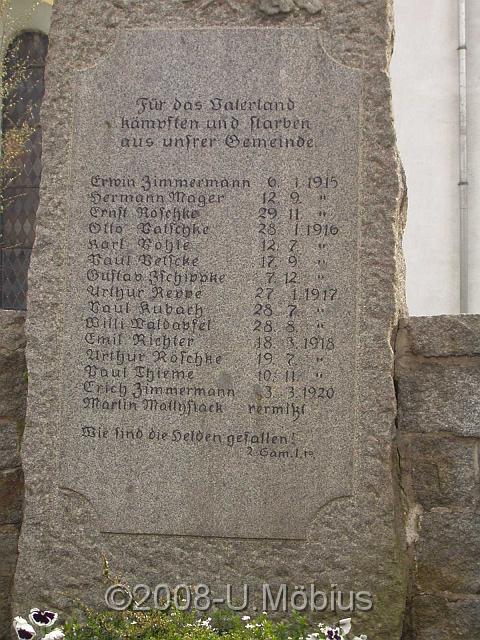 Für das Vaterland
kämpften und starben
aus unsrer Gemeinde
Erwin Zimmermann 6. 1. 1915
Hermann Mager 12. 9. "
Ernst Röschke 29. 11. "
Otto Patschke 28. 1. 1916
Karl Pohle 12. 7. "
Paul Petscke 17. 9. "
Gustav Zschippke 7. 12. "
Arthur Reppe 27. 1. 1917
Paul Kubach 28. 7. "
Willi Waldapfel 28. 8. "
Emil Richter 18. 3. 1918
Arthur Röschke 19. 7. "
Paul Thieme 10. 11. "
Erich Zimmermann 3. 3. 1920
Martin Mattystack vermißt
Wie sind die Helden gefallen!
2. Sam. 1. 19
©2008-U.Möbius